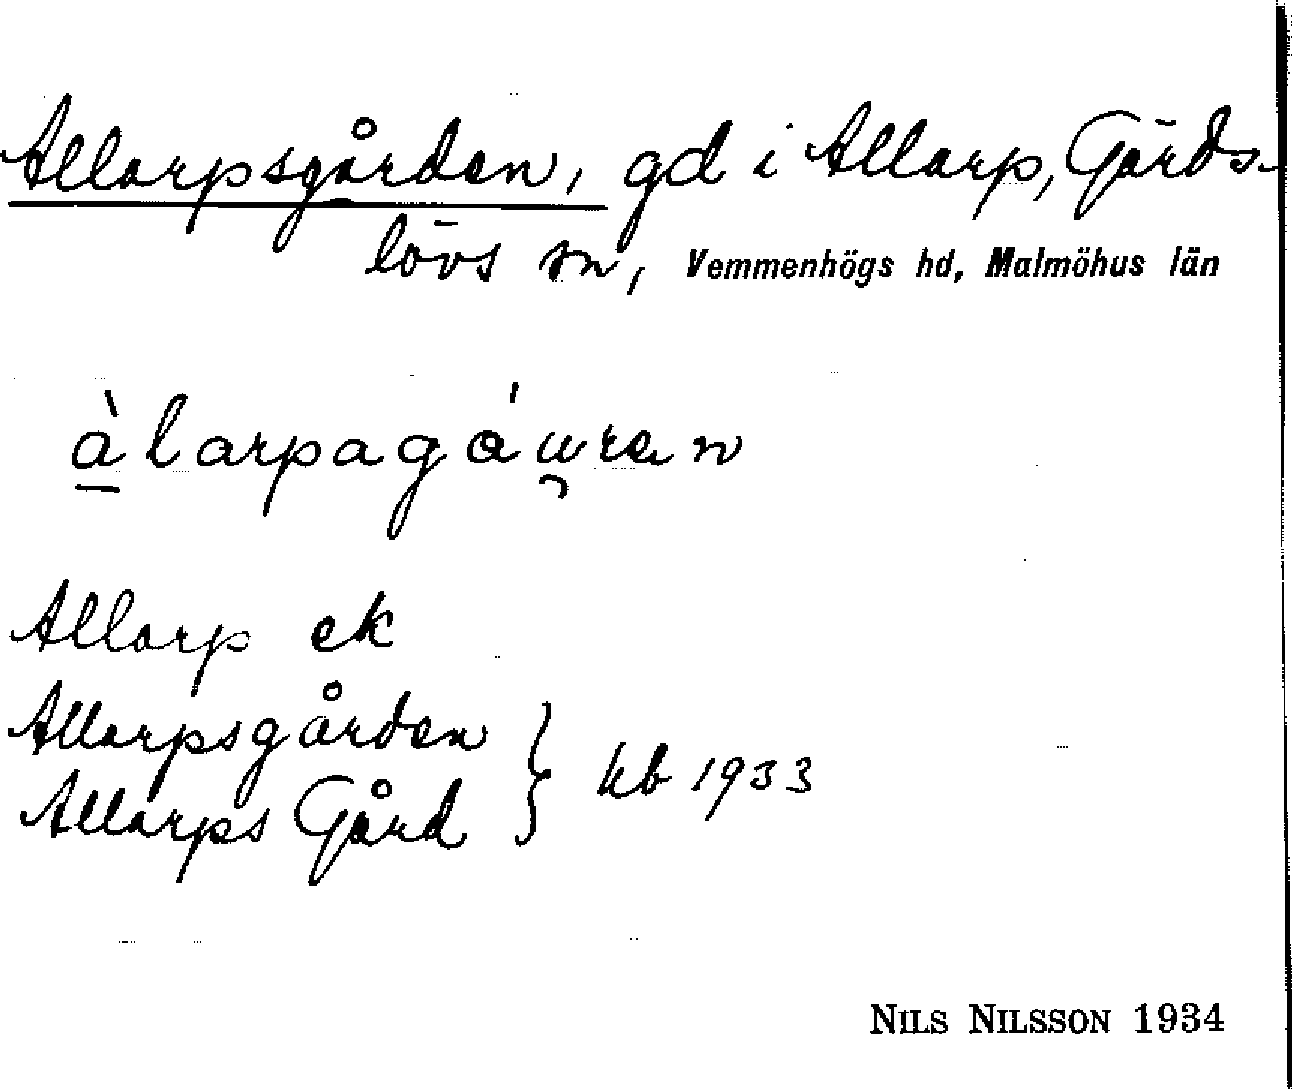 Allarpsgården, gd i Allarp, Gärds-
lövs sn, Vemmenhögs hd, Malmöhus län
à̱larpagáu̯ran
Allarp ek
Allarpsgården
Allarps Gård } kb 1933
NILS NILSSON 1934